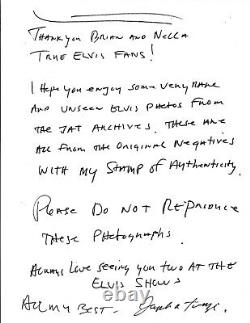 Thank you Brian and Nella
True Elvis Fans!
I hope you enjoy some very rare
and unseen Elvis photos from
the JAT Archives. These are
all from the original negatives
with my stamp of authenticity.
Please Do Not Reproduce
These Photographs.
Always love seeing you two at the
Elvis Shows
All my best-